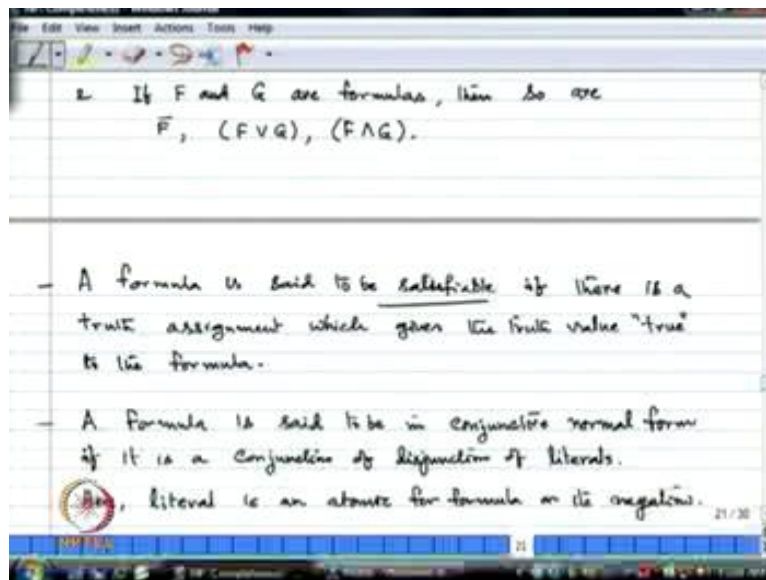 File Edit View Insert Actions Tools Help
2 If F and G are formulas, then so are
F̅, (F ∨ G), (F ∧ G).
- A formula is said to be satisfiable if there is a
truth assignment which gives the truth value "true"
to the formula.
- A formula is said to be in conjunctive normal form
if it is a conjunction of disjunction of literals.
literal is an atomic for formula or its negation.
21/30
NPTEL
21